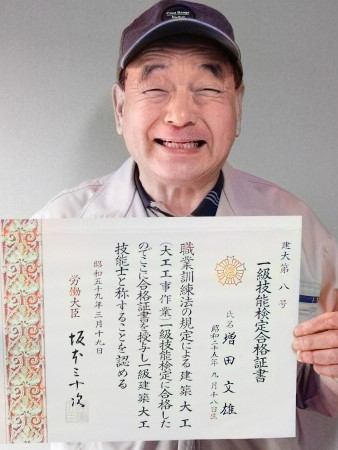 建大第八号
一級技能検定合格証書
氏名 増田文雄
昭和二十五年九月十八日生
職業訓練法の規定による建築大工
(大工工事作業)一級技能検定に合格した
のでここに合格証書を授与し一級建築大工
技能士と称することを認める
昭和五十九年三月十九日
労働大臣 坂本三十次